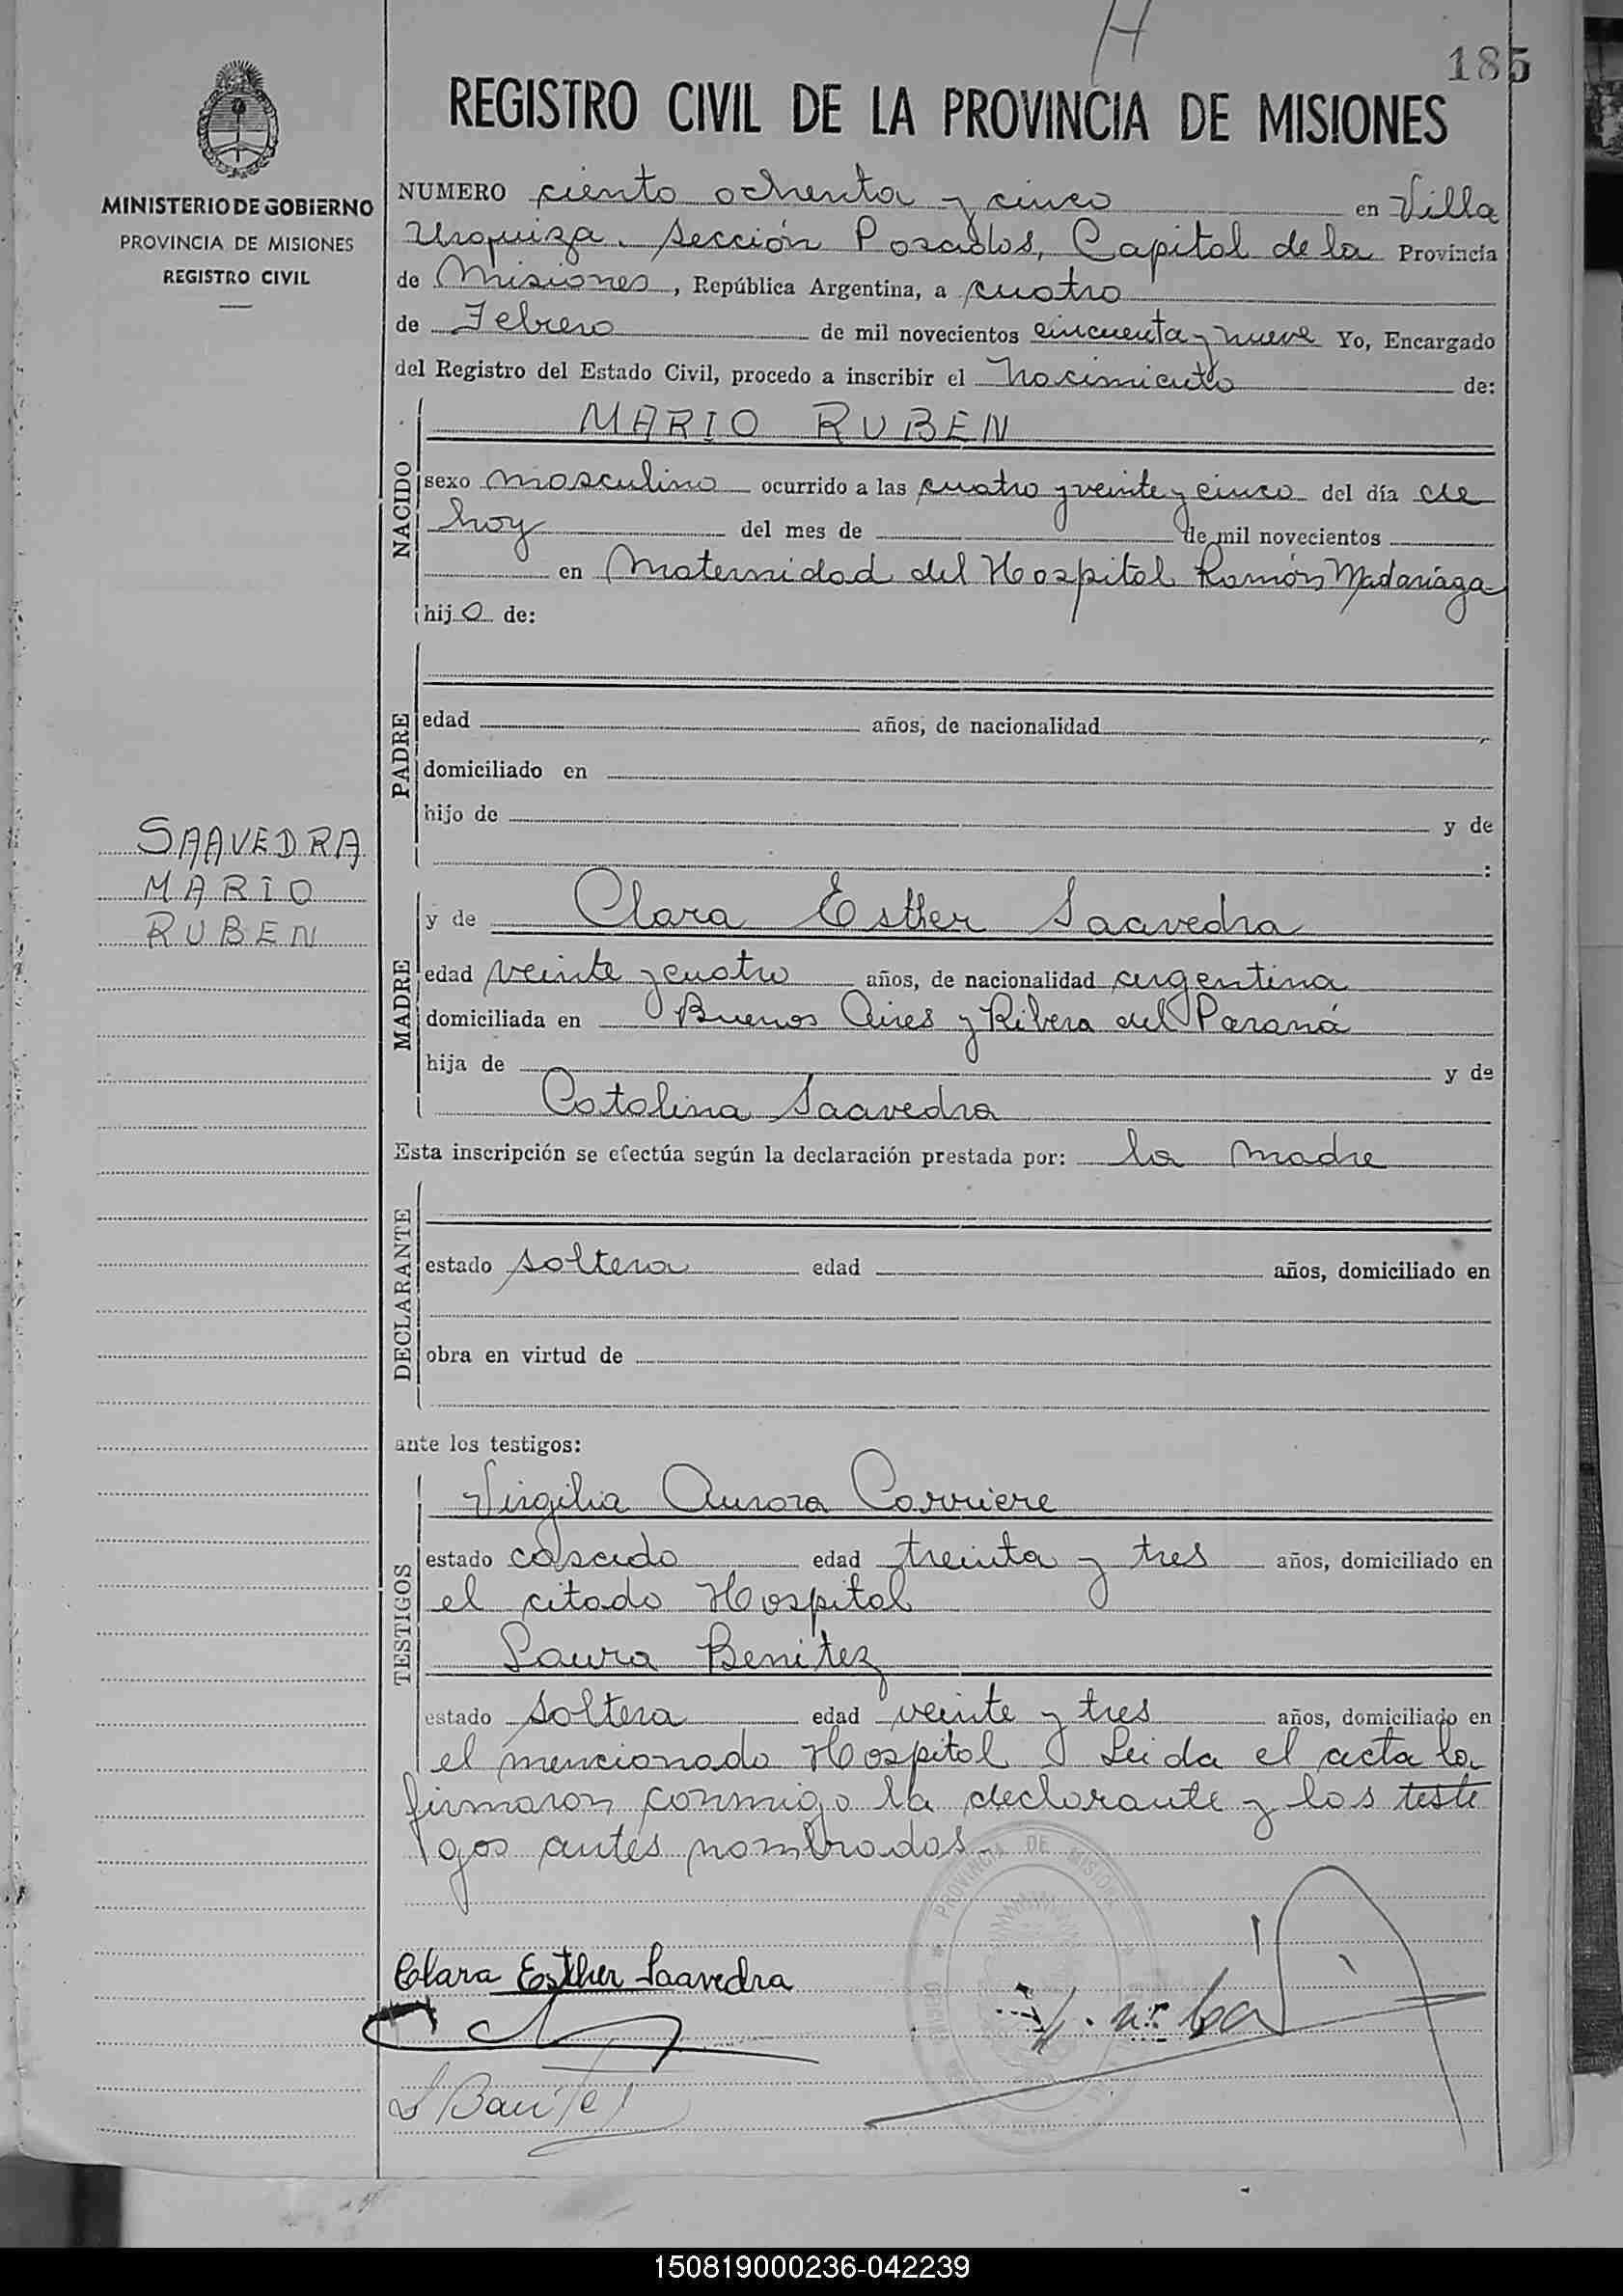 H
185
REGISTRO CIVIL DE LA PROVINCIA DE MISIONES
MINISTERIO DE GOBIERNO
PROVINCIA DE MISIONES
REGISTRO CIVIL
NUMERO ciento ochenta y cinco en Villa
Urquiza. Sección Posadas, Capital de la Provincia
de Misiones, República Argentina, a cuatro
de Febrero de mil novecientos cincuenta y nueve Yo, Encargado
del Registro del Estado Civil, procedo a inscribir el Nacimiento de:
NACIDO
MARIO RUBEN
sexo masculino ocurrido a las cuatro y veinte y cinco del día de
hoy del mes de de mil novecientos
en Maternidad del Hospital Ramón Madariaga
hijo de:
PADRE
edad años, de nacionalidad
domiciliado en
hijo de y de
:
SAAVEDRA
MARIO
RUBEN
MADRE
y de Clara Esther Saavedra
edad veinte y cuatro años, de nacionalidad argentina
domiciliada en Buenos Aires y Ribera del Paraná
hija de y de
Catalina Saavedra
Esta inscripción se efectúa según la declaración prestada por: la madre
DECLARANTE
estado soltera edad años, domiciliado en
obra en virtud de
ante los testigos:
TESTIGOS
Virgilia Aurora Carriere
estado casado edad treinta y tres años, domiciliado en
el citado Hospital
Laura Benitez
estado soltera edad veinte y tres años, domiciliado en
el mencionado Hospital. Leida el acta la
firmaron conmigo la declarante y los testi
gos antes nombrados.-
PROVINCIA DE MISIONES
Clara Esther Saavedra
L Benitez
150819000236-042239